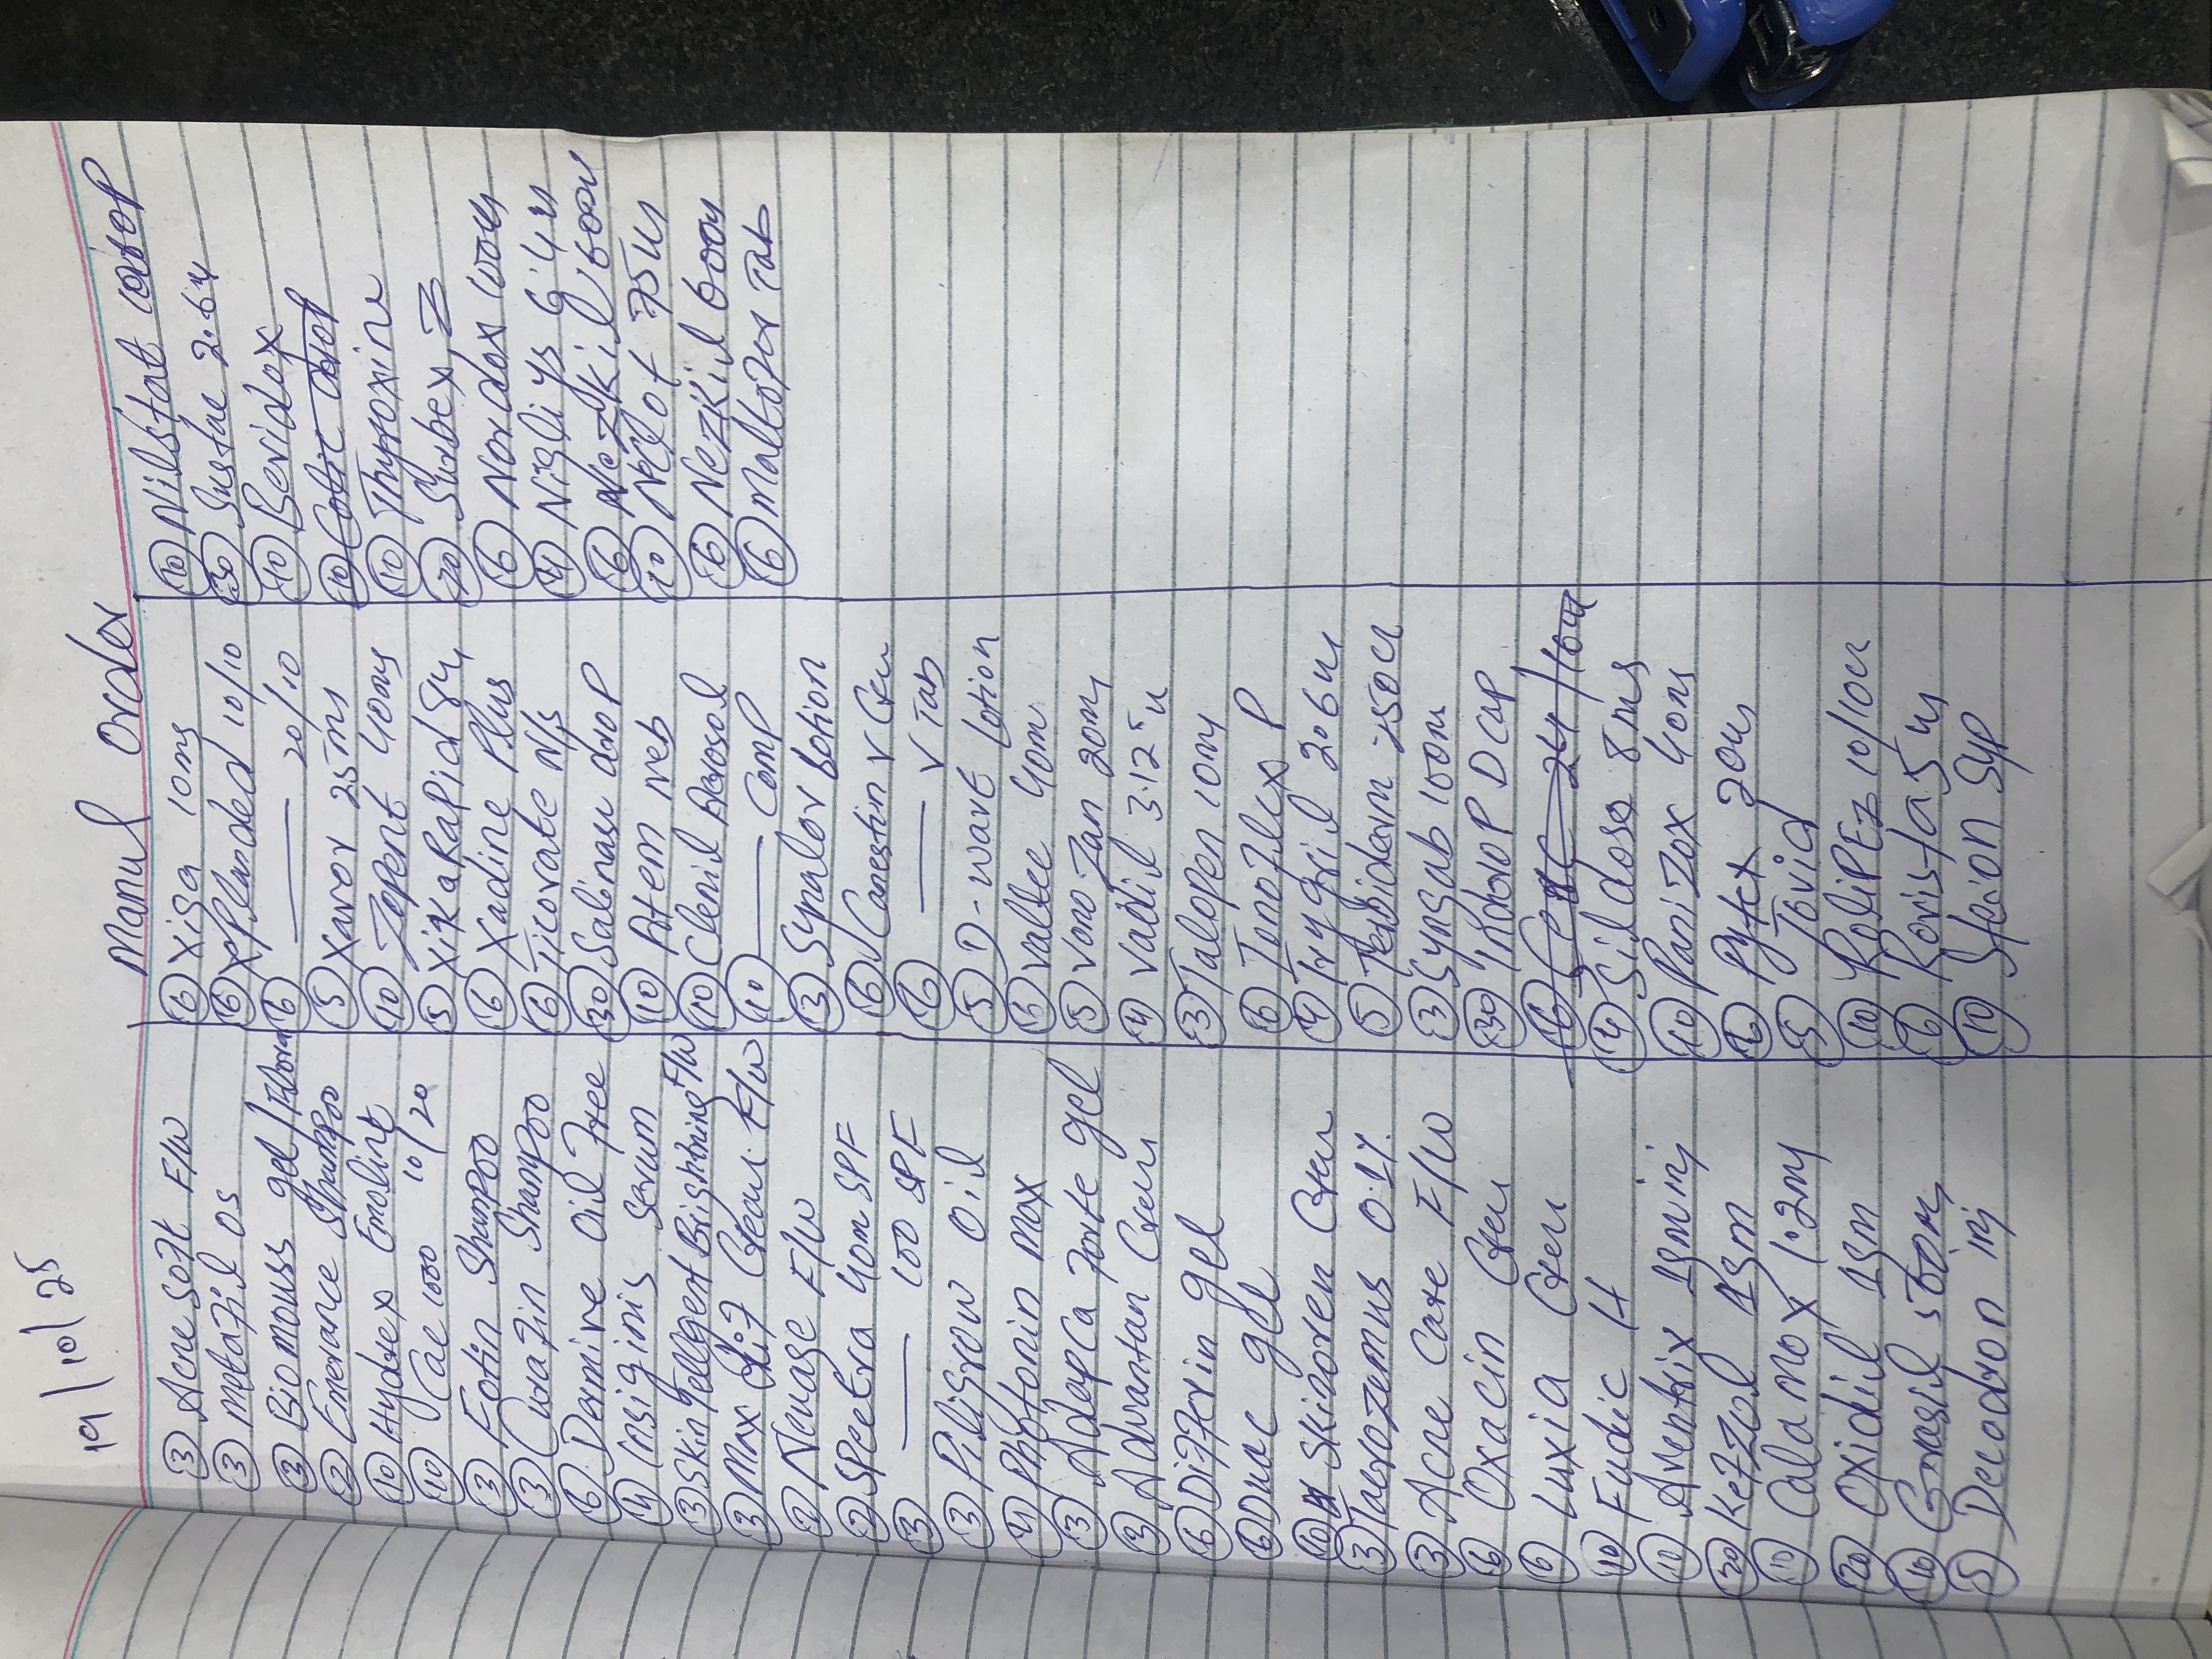 19/10/25
Manul Order
③ Acne Soft F/W
③ Metafil OS
③ Biomouss gel /
② Emerance Shampoo
⑩ Hydtex Emolint
⑩ Cac 1000 10/20
③ Fotin Shampoo
③ Cuvazin Shampoo
⑥ Dermive Oil Free
④ Insiginis Serum
③ Skin Tellgent Brightning F/W
③ Max Clean F/W
② Nevage F/W
② Spectra 40m SPF
③ —— 100 SPF
③ Piligrow Oil
④ Phytonin Max
③ AdeyCa Forte gel
③ Advantan Crem
⑥ Differin gel
⑥ Duac gel
⑩ Skinoren Crem
③ Tacrozemus 0.1%
③ Acne Care F/W
⑥ Oxacin Crem
⑥ Luxia Crem
⑩ Fudic H
⑩ Aventrix 1gm inj
⑳ Kefzol 1gm
⑩ Calamox 1.2mg
⑳ Oxidil 1gm
⑩ Grasil 500mg
⑤ Decadron inj
⑥ Xiga 10mg
⑥ Xplended 10/10
⑥ —— 20/10
⑤ Xavor 25mg
⑩ Zepent 400mg
⑤ Xika Rapid 8mg
⑥ Xadine Plus
⑥ Ticovate N/S
㉚ Salinase drop
⑩ Atem neb
⑩ Clenil Aerosol
⑩ —— Comp
③ Synalor Lotion
⑥ Canestin V Crem
⑥ —— V Tab
⑤ D-wave Lotion
⑥ Valtec 40m
⑤ Vono Zan 20m
④ Vadil 3.125m
③ Talopen 10mg
⑥ Tonoflex P
④ Trygril 2.6m
⑤ Terbiderm 250m
③ Syngab 100m
㉚ Indrop D Cap
④ Sildose 8mg
⑩ Panizox 40mg
⑥ Pytex 20m
⑤ Tovid
⑩ Rolip Ez 10/10m
⑥ Rovista 5mg
⑩ Syp
⑩ Nilstat drop
㉚ Sustac 2.6m
⑩ Bevidox
⑩ Colic drop
⑩ Thyroxine
⑳ Surbex Z
⑥ Nordox 100mg
④ Nigliys 6.4m
⑥ Nezkil 600m
⑩ Nclot 75m
⑥ Nezkil 600m
⑥ Maltofer Tab